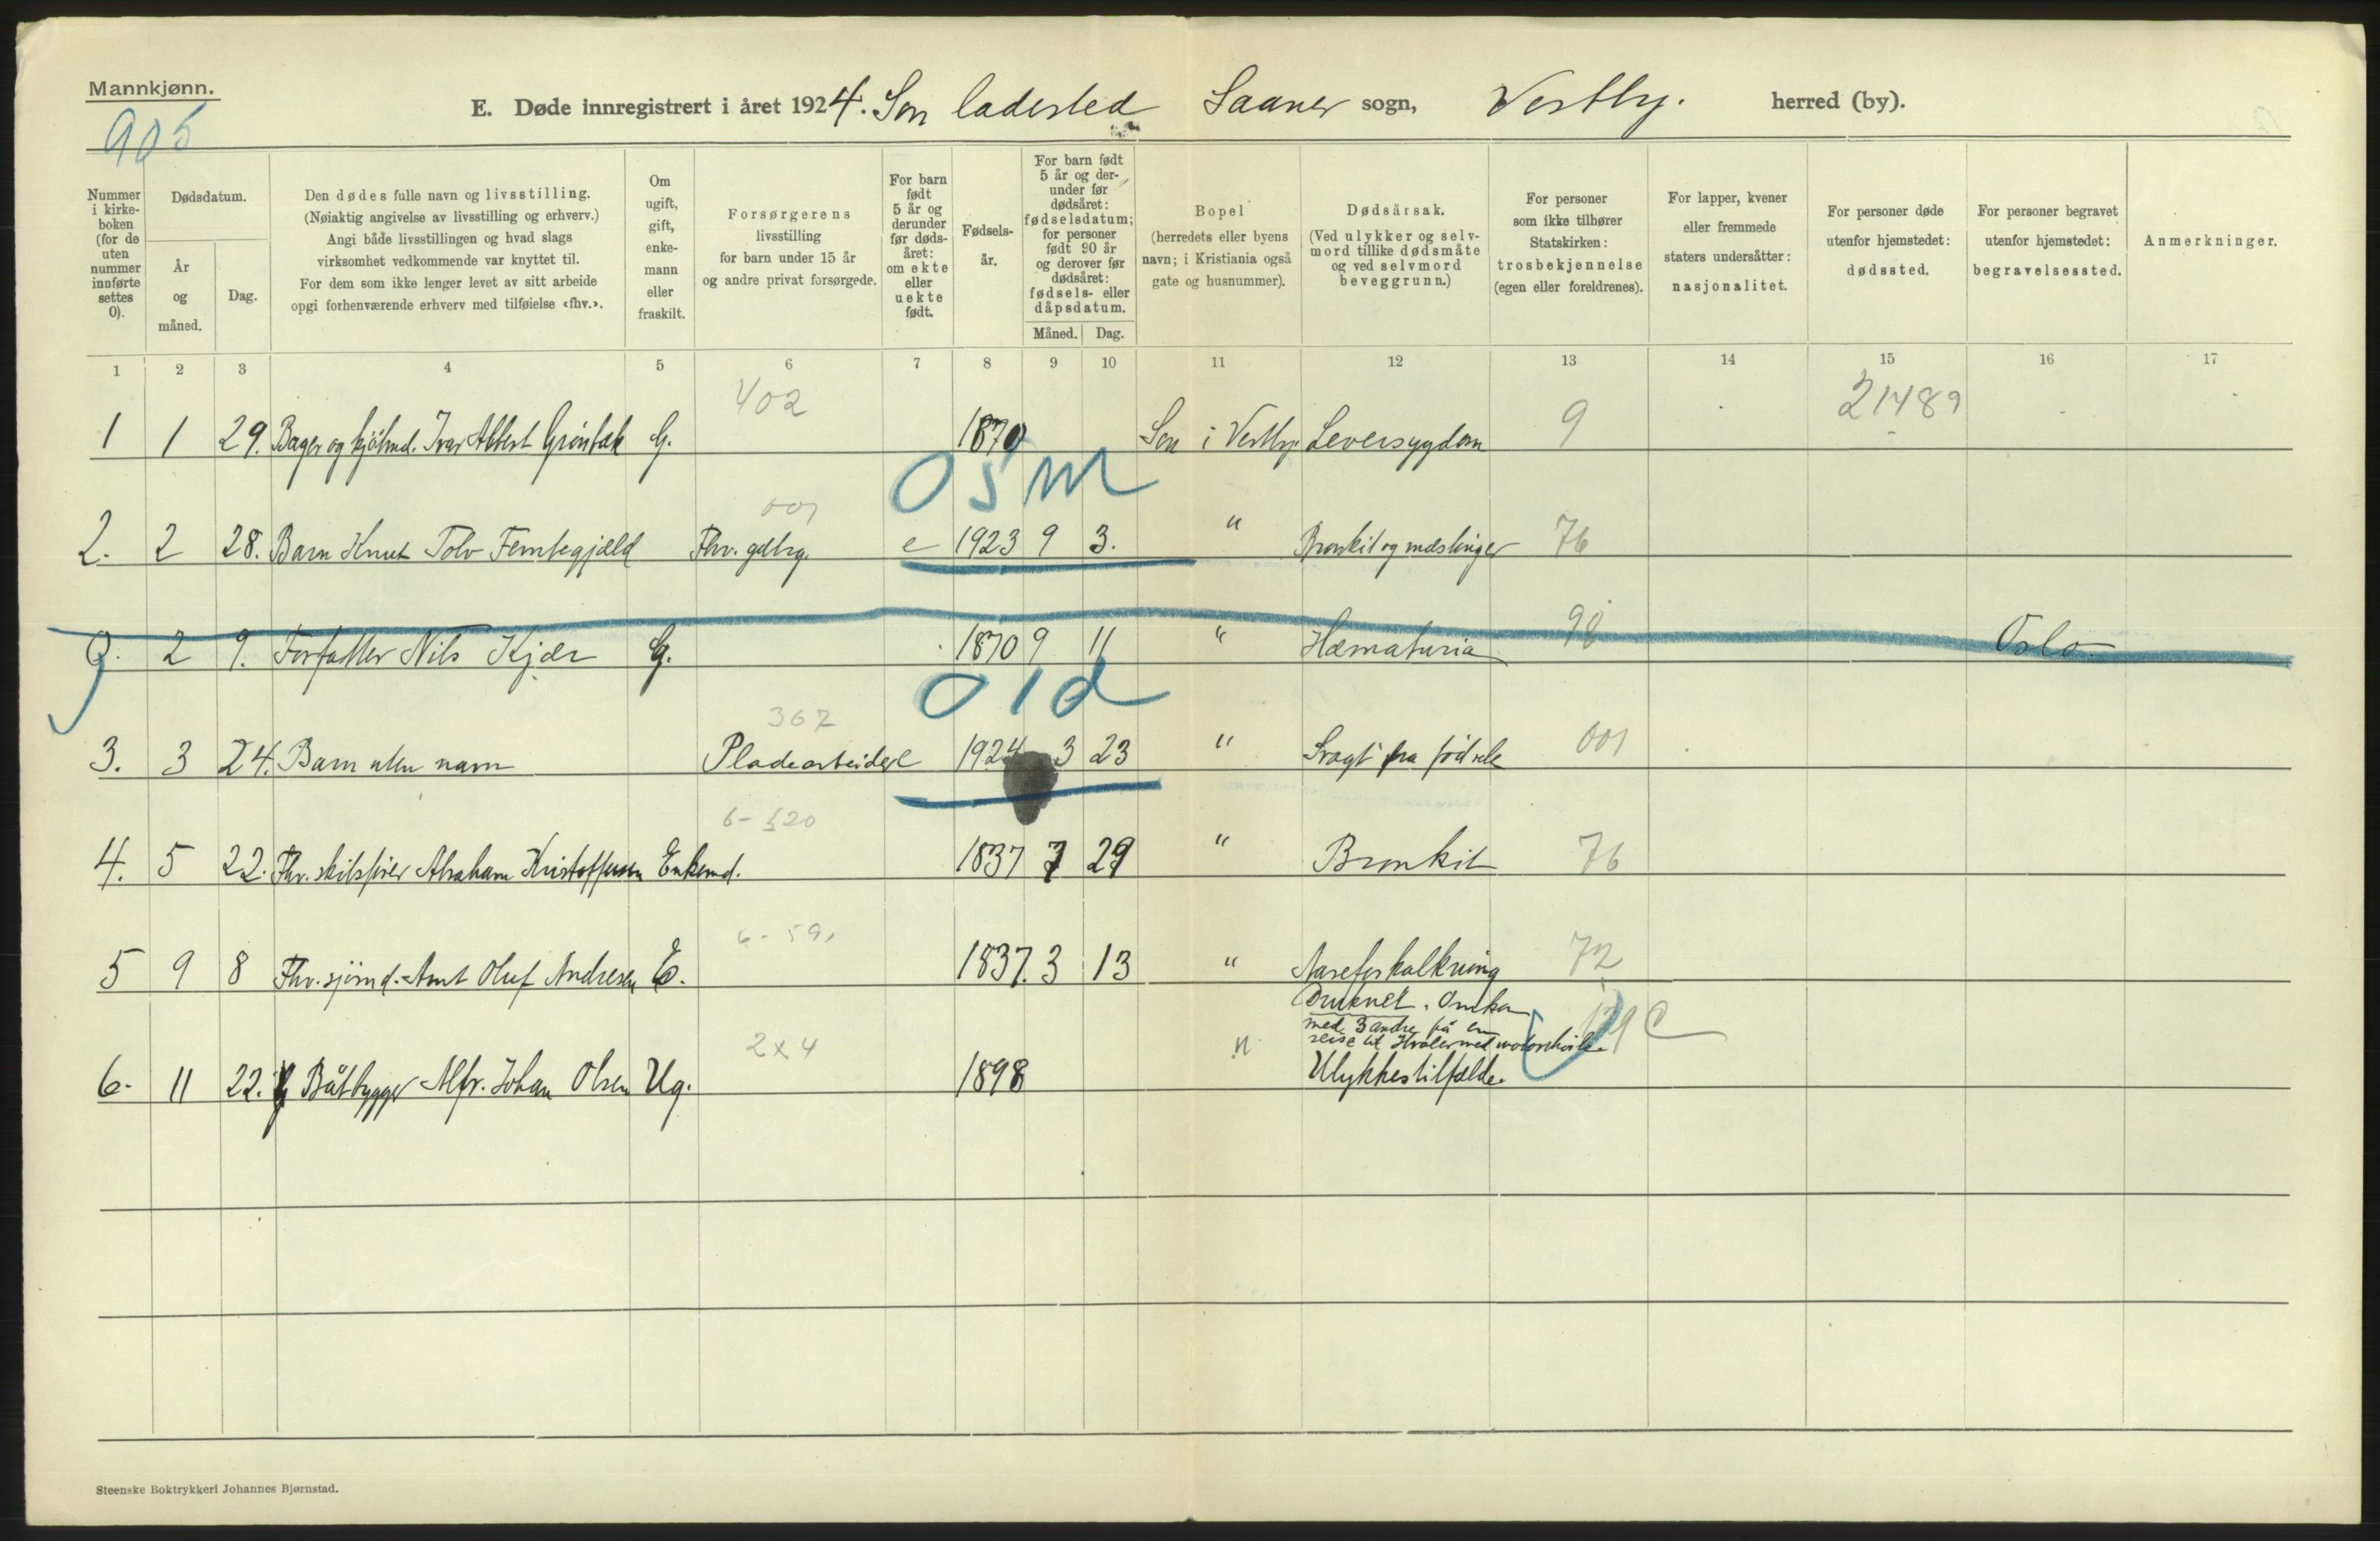 Mannkjønn.
905
E. Døde innregistrert i året 1924. Son ladested Saaner sogn, Vestby. herred (by).
Nummer i kirke- boken (for de uten nummer innførte settes 0).
Dødsdatum.
År og måned.
Dag.
Den dødes fulle navn og livsstilling.
(Nøiaktig angivelse av livsstilling og erhverv.)
Angi både livsstillingen og hvad slags
virksomhet vedkommende var knyttet til.
For dem som ikke lenger levet av sitt arbeide
opgi forhenværende erhverv med tilføielse «fhv.».
Om ugift, gift, enke- mann eller fraskilt.
Forsørgerens
livsstilling
for barn under 15 år
og andre privat forsørgede.
For barn født 5 år og derunder før døds- året: om ekte eller uekte født.
Fødsels- år.
For barn født 5 år og der- under før dødsåret: fødselsdatum; for personer født 90 år og derover før dødsåret: fødsels- eller dåpsdatum.
Måned. Dag.
Bopel
(herredets eller byens
navn; i Kristiania også
gate og husnummer).
Dødsårsak.
(Ved ulykker og selv-
mord tillike dødsmåte
og ved selvmord
beveggrunn.)
For personer
som ikke tilhører
Statskirken:
trosbekjennelse
(egen eller foreldrenes).
For lapper, kvener
eller fremmede
staters undersåtter:
nasjonalitet.
For personer døde
utenfor hjemstedet:
dødssted.
For personer begravet
utenfor hjemstedet:
begravelsessted.
Anmerkninger.
1 2 3 4 5 6 7 8 9 10 11 12 13 14 15 16 17
402 21489
1 1 29. Bager og kjøbmd. Ivar Albert Grøntak G. 1870 Son i Vestby Leversygdom 9
05 m
001
2. 2 28. Barn Knut Tolv Femtegjæld Fhv. gdbrg. e 1923 9 3. " Bronkit og mæslinger 76
0. 2 9. Forfatter Nils Kjær G. 1870 9 11 " Hæmaturia 98 Oslo
01d
367
3. 3 24. Barn uten navn Pladearbeider e 1924 3 23 " Svagt fra fødsele 001
6-520
4. 5 22. Fhv. skibsfører Abraham Kristoffersen Enkemd. 1837 7 29 " Bronkit 76
6-591
5 9 8 Fhv. sjømd. Amt Oluf Andresen E. 1837. 3 13 " Aareforkalkning 72
Druknet. Omkom
med 3 andre på en
reise til Hvaler med motorskøite.
2x4 179 C
6. 11 22. Båtbygger Alfr. Johan Olsen Ug. 1898 " Ulykkestilfælde.
Steenske Boktrykkeri Johannes Bjørnstad.